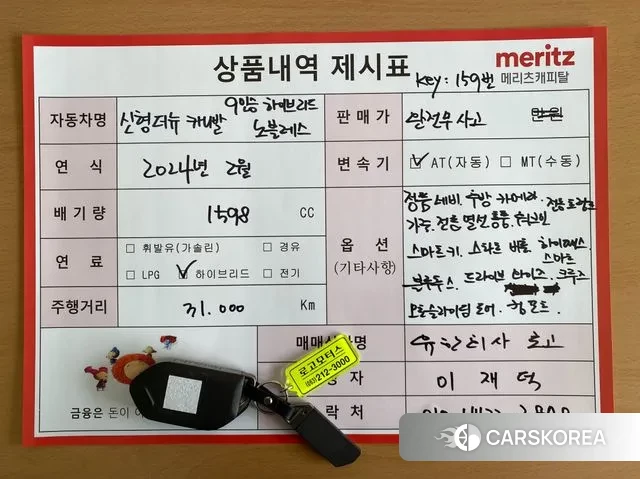 상품내역 제시표
meritz
메리츠캐피탈
key : 159번
자동차명
신형더뉴 카니발
9인승 하이브리드
노블레스
판 매 가
완전무사고
만원
연 식
2024년 2월
변 속 기
AT(자동) MT(수동)
배 기 량
1598 CC
연 료
휘발유(가솔린) 경유
LPG 하이브리드 전기
옵 션
(기타사항)
정품네비. 후방 카메라. 전동트렁크
가죽. 전동 열선 통풍
스마트키. 스타트 버튼. 하이패스.
스마트
블루투스. 드라이브 크루즈
오토슬라이딩 도어.
주행거리
31.000 Km
매매
명
유한회사 로고
자
이 재 덕
락 처
금융은 돈이
로고모터스
(063)212-3000
CARSKOREA